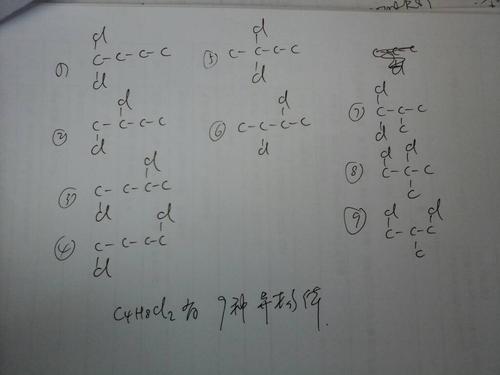 ①
Cl
C-C-C-C
Cl
②
Cl
C-C-C-C
Cl
③
Cl
C-C-C-C
Cl
④
Cl
C-C-C-C
Cl
⑤
Cl
C-C-C-C
Cl
⑥
Cl
C-C-C-C
Cl
⑦
Cl
C-C-C
Cl C
⑧
Cl Cl
C-C-C
C
⑨
Cl Cl
C-C-C
C
C4H8Cl2有9种异构体